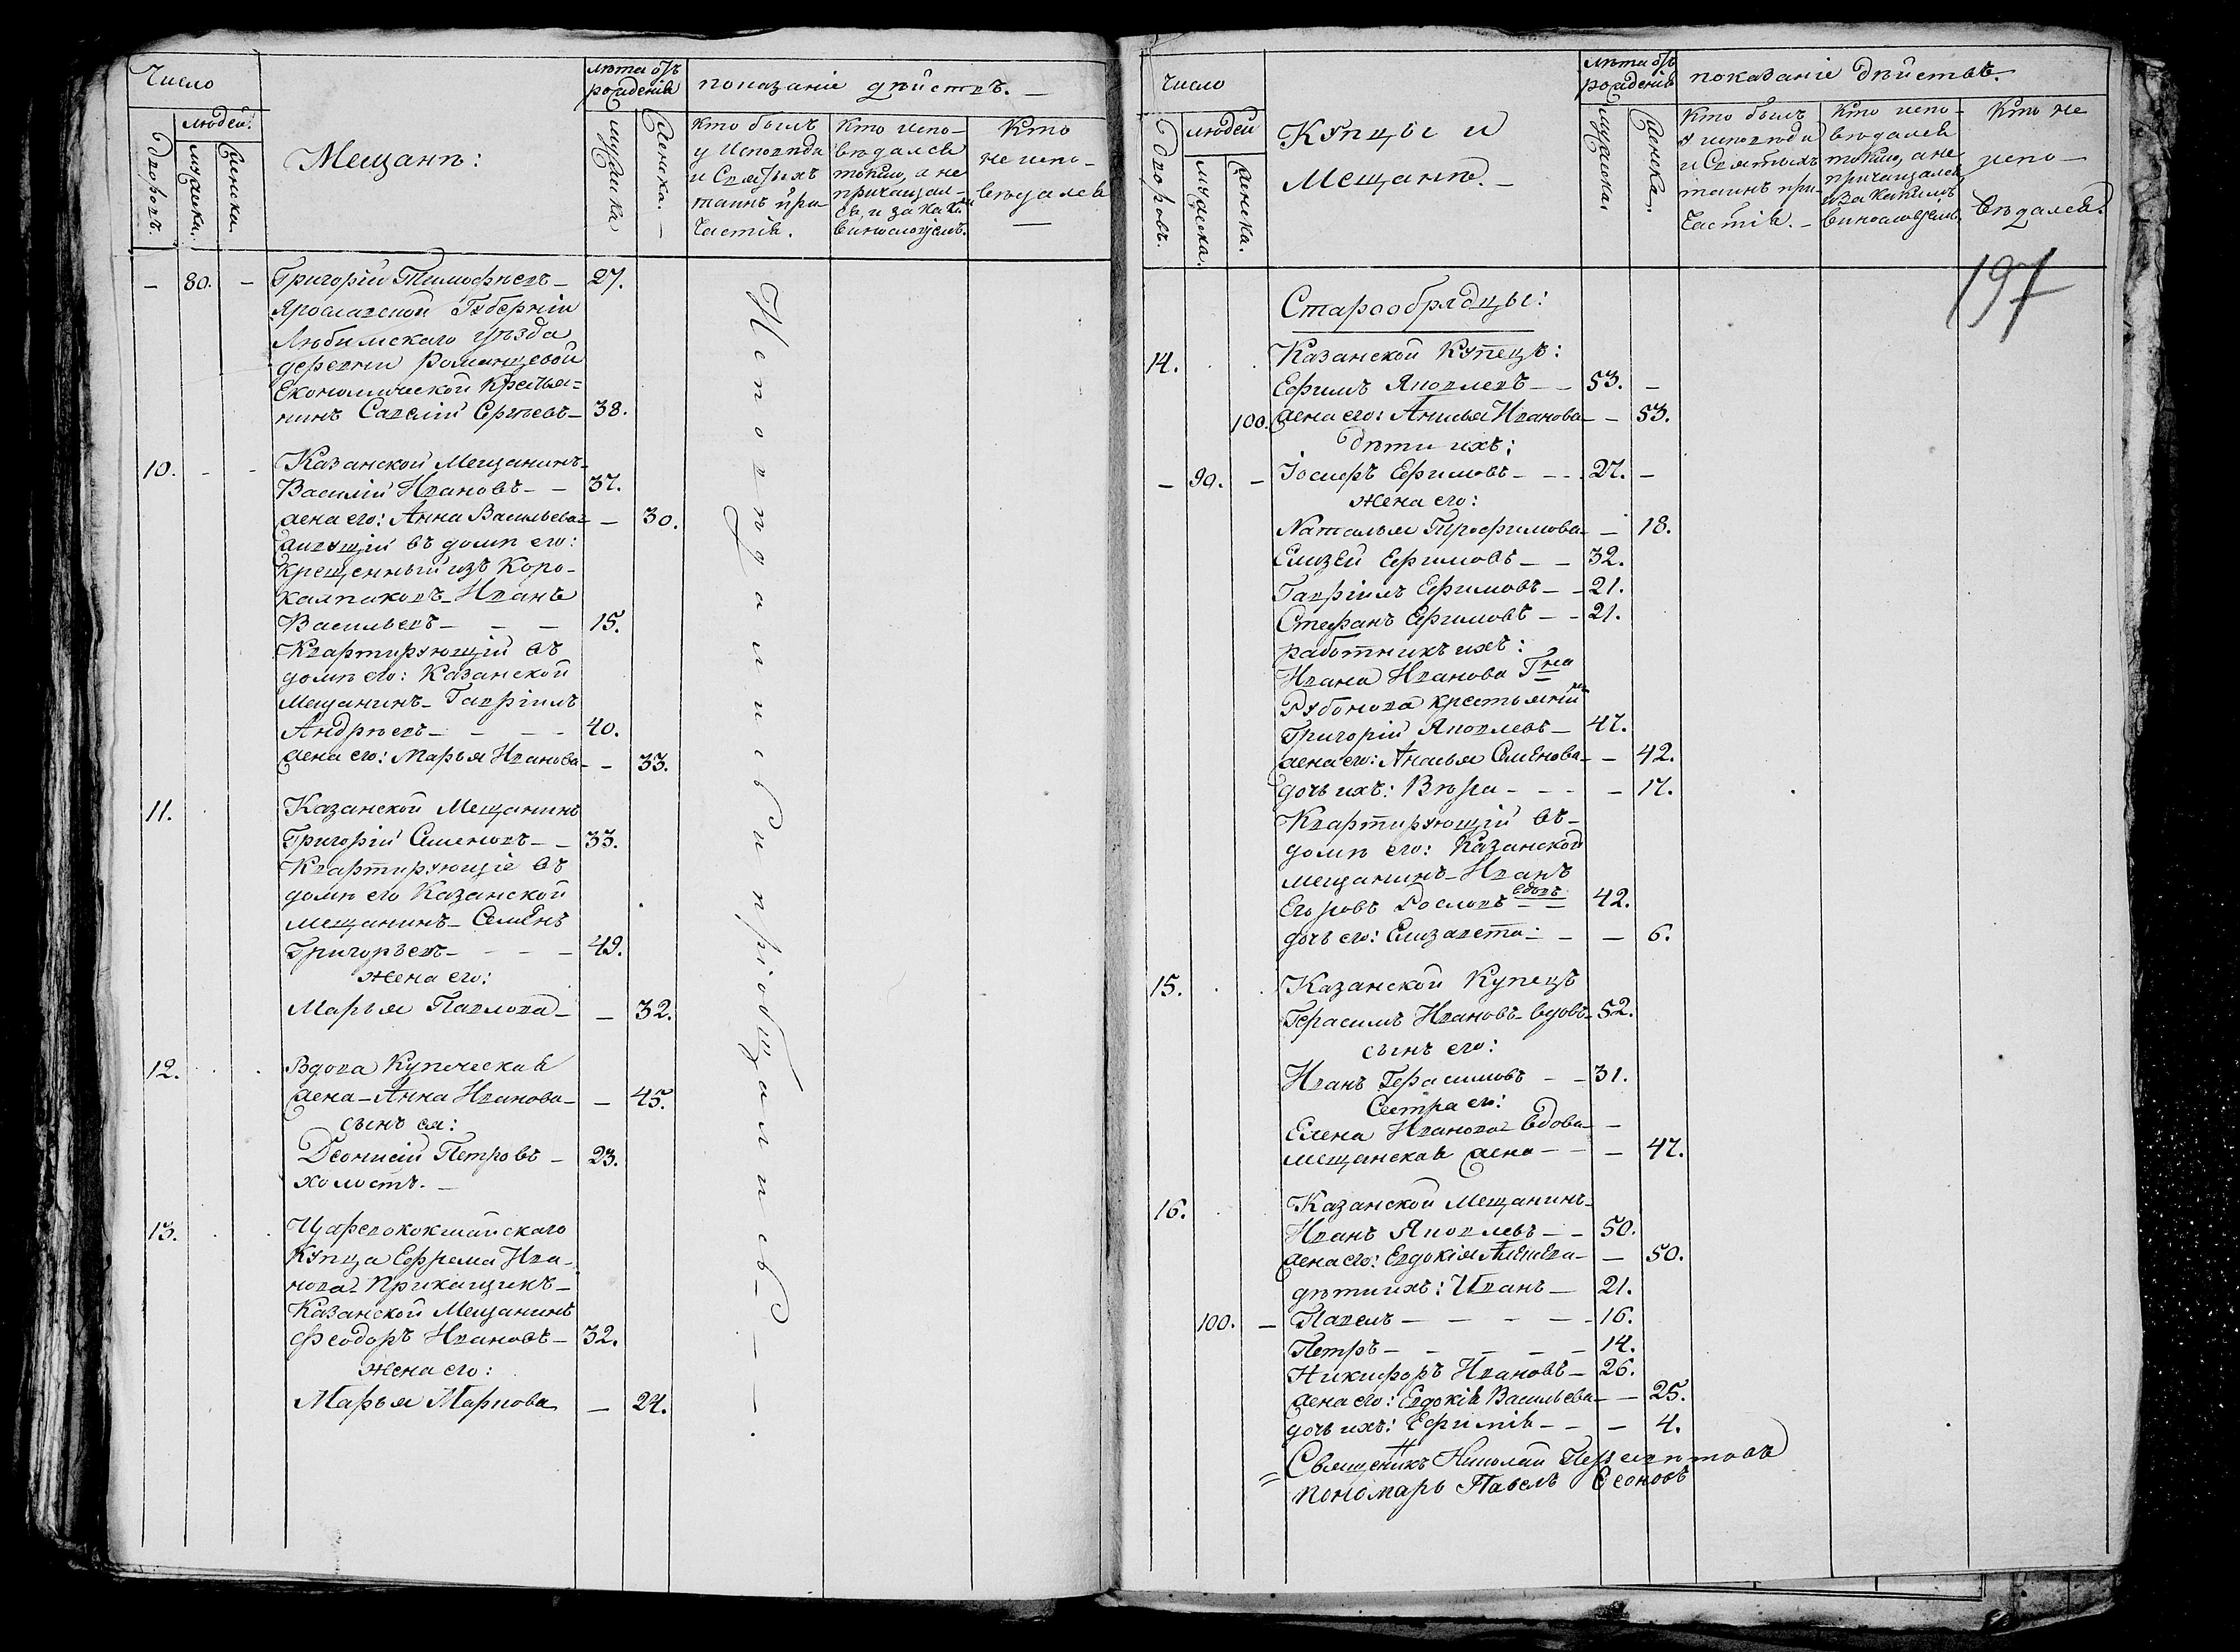 Число
людей:
дворовъ.
мужеска.
женска.
Мещанѣ:
лѣта отъ
рожденія
мужеска
женска.
показаніе дѣйствъ.
Кто былъ
у Исповѣди
и Святыхъ
таинъ при
частія.
Кто испо-
вѣдался
токмо, а не
причащал-
ся, и за каки
виносло
Кто
не испо-
вѣдался
— 80. — Григорій Тимофѣевъ — 27.
Ярославской Губерніи
Любимскаго уѣзда
деревни Романцевой
Економической Крестья=
нинъ Савелій Сергѣевъ — 38.
10. - - Казанской Мещанинъ
Василій Ивановъ — — 37.
жена его: Анна Васильева — 30.
живущій въ домѣ его:
Крещенный изъ Коро-
калпаковъ — Иванъ
Васильевъ — — — 15.
Квартирующій въ
домѣ его: Казанской
Мещанинъ — Гавріилъ
Андрѣевъ — — — — 40.
жена его: Марья Иванова — — 33.
11. Казанской Мещанинъ
Григорій Семеновъ — — 33.
Квартирующіе въ
домѣ его Казанской
мещанинъ — Семенъ
Григорьевъ — — — — 49.
жена его:
Марья Павлова — — 32.
12. Вдова Купеческая
жена — Анна Иванова — — 45.
сынъ ея:
Деонисій Петровъ — 23.
холостъ. —
13. Царевококшайскаго
Купца Ефрема Ива-
нова — Прикащикъ —
Казанской Мещанинъ
Феодоръ Ивановъ — 32.
жена его:
Марья Маркова — 24.
Исповѣдались и пріобщались — — .
Число
людей
дворовъ.
мужеска.
женска.
Купцы и
Мещанѣ. —
лѣта отъ
рожденія
мужеска
женска.
показаніе дѣйствъ.
Кто былъ
у исповѣди
и Святыхъ
таинъ при-
частія. —
Кто испо-
вѣдался
токмо, а не
причащался
и за какимъ
Кто не
испо —
вѣдался.
197
Старообрядцы:
14. Казанской Купецъ:
Ефимъ Яковлевъ — — 53. —
100. жена его: Анисья Иванова — — 53.
дѣти ихъ:
— 90. — Іосифъ Ефимовъ — — — 27. —
жена его:
Наталья Трофимова — 18.
Елизей Ефимовъ — — 32.
Гавріилъ Ефимовъ — — 21.
Стефанъ Ефимовъ — — 21.
работникъ ихъ:
Ивана Иванова Гна
Рубонова крестьянинъ
Григорій Яковлевъ — 47.
жена его: Анисья Семенова — — 42.
дочь ихъ: Вѣра — — — — 17.
Квартирующій въ —
домѣ его: Казанской
мещанинъ — Иванъ
Егоровъ Рословъ вдовъ — 42.
дочь его: Елизавета — — — 6.
15. Казанской Купецъ
Герасимъ Ивановъ — вдовъ — 52.
сынъ его:
Иванъ Герасимовъ — — 31.
Сестра его:
Елена Иванова вдова —
мещанская жена — — — 47.
16. Казанской Мещанинъ
Иванъ Яковлевъ — — 50.
жена его: Евдокія — — 50.
дѣти ихъ: Иванъ — 21.
100. — Павелъ — — — — 16.
Петръ — — — — 14.
Никифоръ Ивановъ — 26.
жена его: Евдокія Васильева — — 25.
дочь ихъ: Ефимія — — — 4.
Священникъ Николай
Пономарь Павелъ Леоновъ